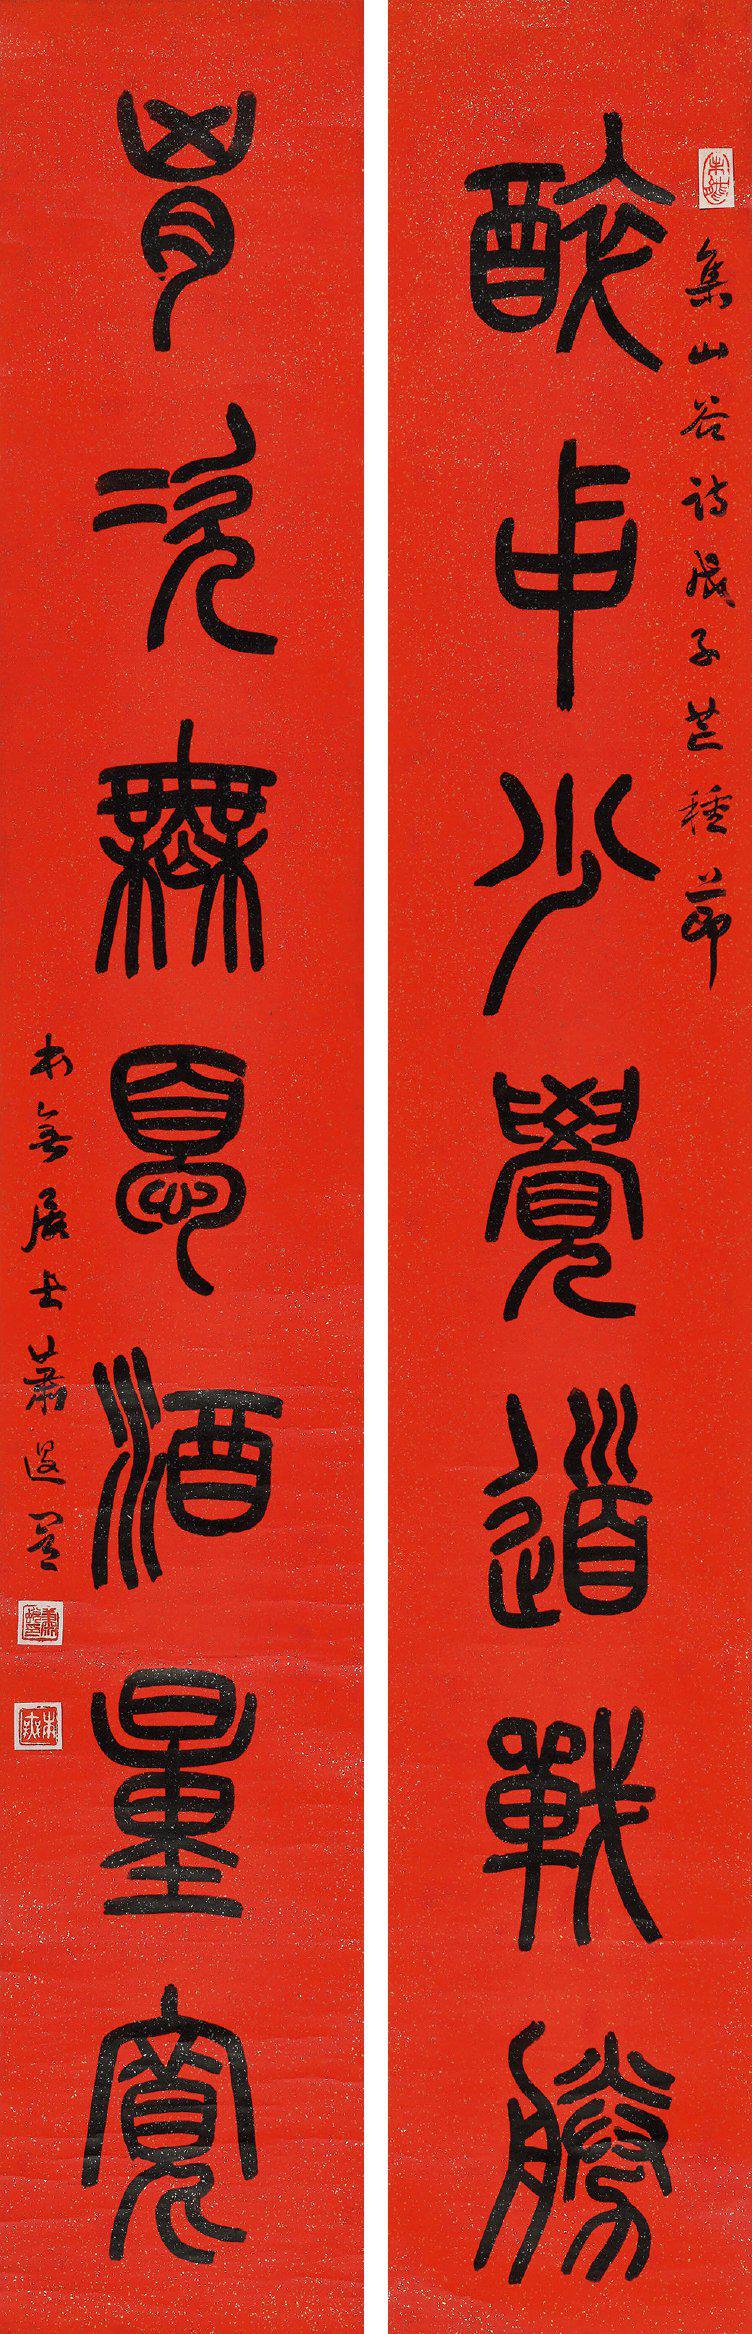 集山谷詩戊子芒種節
醉中少覺道戰勝
胷次無憂酒量寬
本無居士蕭退闇